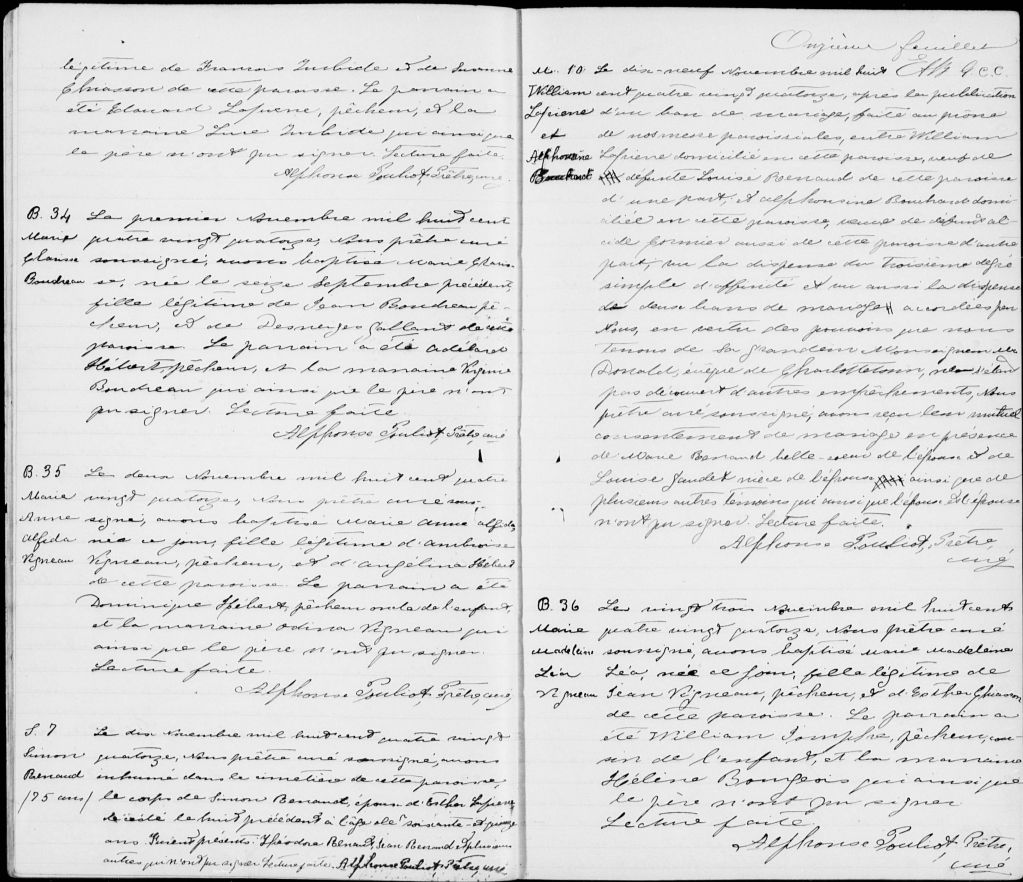 légitime de François Turbide et de Suzanne
Chiasson de cette paroisse. Le parrain a
été Edouard Lafrene, pêcheur, et la
marraine Turbide qui ainsi que
le père n'ont pu signer. Lecture faite.
Alphonse Pouliot, Prêtre, curé.
B. 34
Marie
Clarisse
Boudreau
Le premier Novembre mil huit cent
quatre vingt quatorze, Nous prêtre curé
soussigné, avons baptisé Marie Claris-
se, née le seize Septembre précédent,
fille légitime de Jean Boudreau pê-
cheur, et de Desneiges Gallant de cette
paroisse. Le parrain a été Adélard
Hébert, pêcheur, et la marraine Virginie
Boudreau qui ainsi que le père n'ont
pu signer. Lecture faite.
Alphonse Pouliot, Prêtre, curé
B. 35
Marie
Anne
Alfida
Vigneau
Le deux Novembre mil huit cent quatre
vingt quatorze, Nous prêtre curé sous-
signé, avons baptisé Marie Anne Alfida,
née ce jour, fille légitime d'Ambroise
Vigneau, pêcheur, et d'Angélina Hébert
de cette paroisse. Le parrain a été
Dominique Hébert, pêcheur oncle de l'enfant,
et la marraine Odina Vigneau qui
ainsi que le père n'ont pu signer.
Lecture faite.
Alphonse Pouliot, Prêtre, curé
S. 7
Simon
Renaud
(75 ans)
Le dix Novembre mil huit cent quatre vingt
quatorze, Nous prêtre curé soussigné, avons
inhumé dans le cimetière de cette paroisse,
le corps de Simon Renaud, époux d'Esther Lafrene,
décédé le huit précédent à l'âge de soixante-et-quinze
ans. Furent présents: Théodore Renaud, Jean Renaud et plusieurs
autres qui n'ont pu signer. Lecture faite. Alphonse Pouliot, Prêtre, curé
Onzième feuillet
G.C.C.
M. 10
William
Lafrene
et
Alphonsine
Bouchard
Le dix-neuf Novembre mil huit
cent quatre vingt quatorze, après la publication
d'un ban de mariage, faite au prône
de nos messe paroissiales, entre William
Lafrene domicilié en cette paroisse, veuf de
défunte Louise Renaud de cette paroisse
d'une part, et Alphonsine Bouchard domi-
ciliée en cette paroisse, veuve de défunt Al-
cide Cormier aussi de cette paroisse d'autre
part, vu la dispense du troisième degré
simple d'affinité et vu aussi la dispense
de deux bans de mariage accordées par
Nous, en vertu des pouvoirs que nous
tenons de Sa Grandeur Monseigneur Mc
Donald, évêque de Charlottetown, ne s'étant
pas découvert d'autres empêchements, Nous
prêtre curé, soussigné, avons reçu leur mutuel
consentement de mariage en présence
de Marie Renaud belle-soeur de l'époux et de
Louise Gaudet nièce de l'époux, ainsi que de
plusieurs autres témoins qui ainsi que l'époux et l'épouse
n'ont pu signer. Lecture faite.
Alphonse Pouliot, Prêtre,
curé
B. 36
Marie
Madeleine
Léa
Vigneau
Le vingt trois Novembre mil huit cents
quatre vingt quatorze, Nous prêtre curé
soussigné, avons baptisé Marie Madeleine
Léa, née ce jour, fille légitime de
Jean Vigneau, pêcheur, et d'Esther Chiasson
de cette paroisse. Le parrain a
été William Jomphe, pêcheur, cou-
sin de l'enfant, et la marraine
Hélène Bourgeois qui ainsi que
le père n'ont pu signer
Lecture faite.
Alphonse Pouliot, Prêtre,
curé